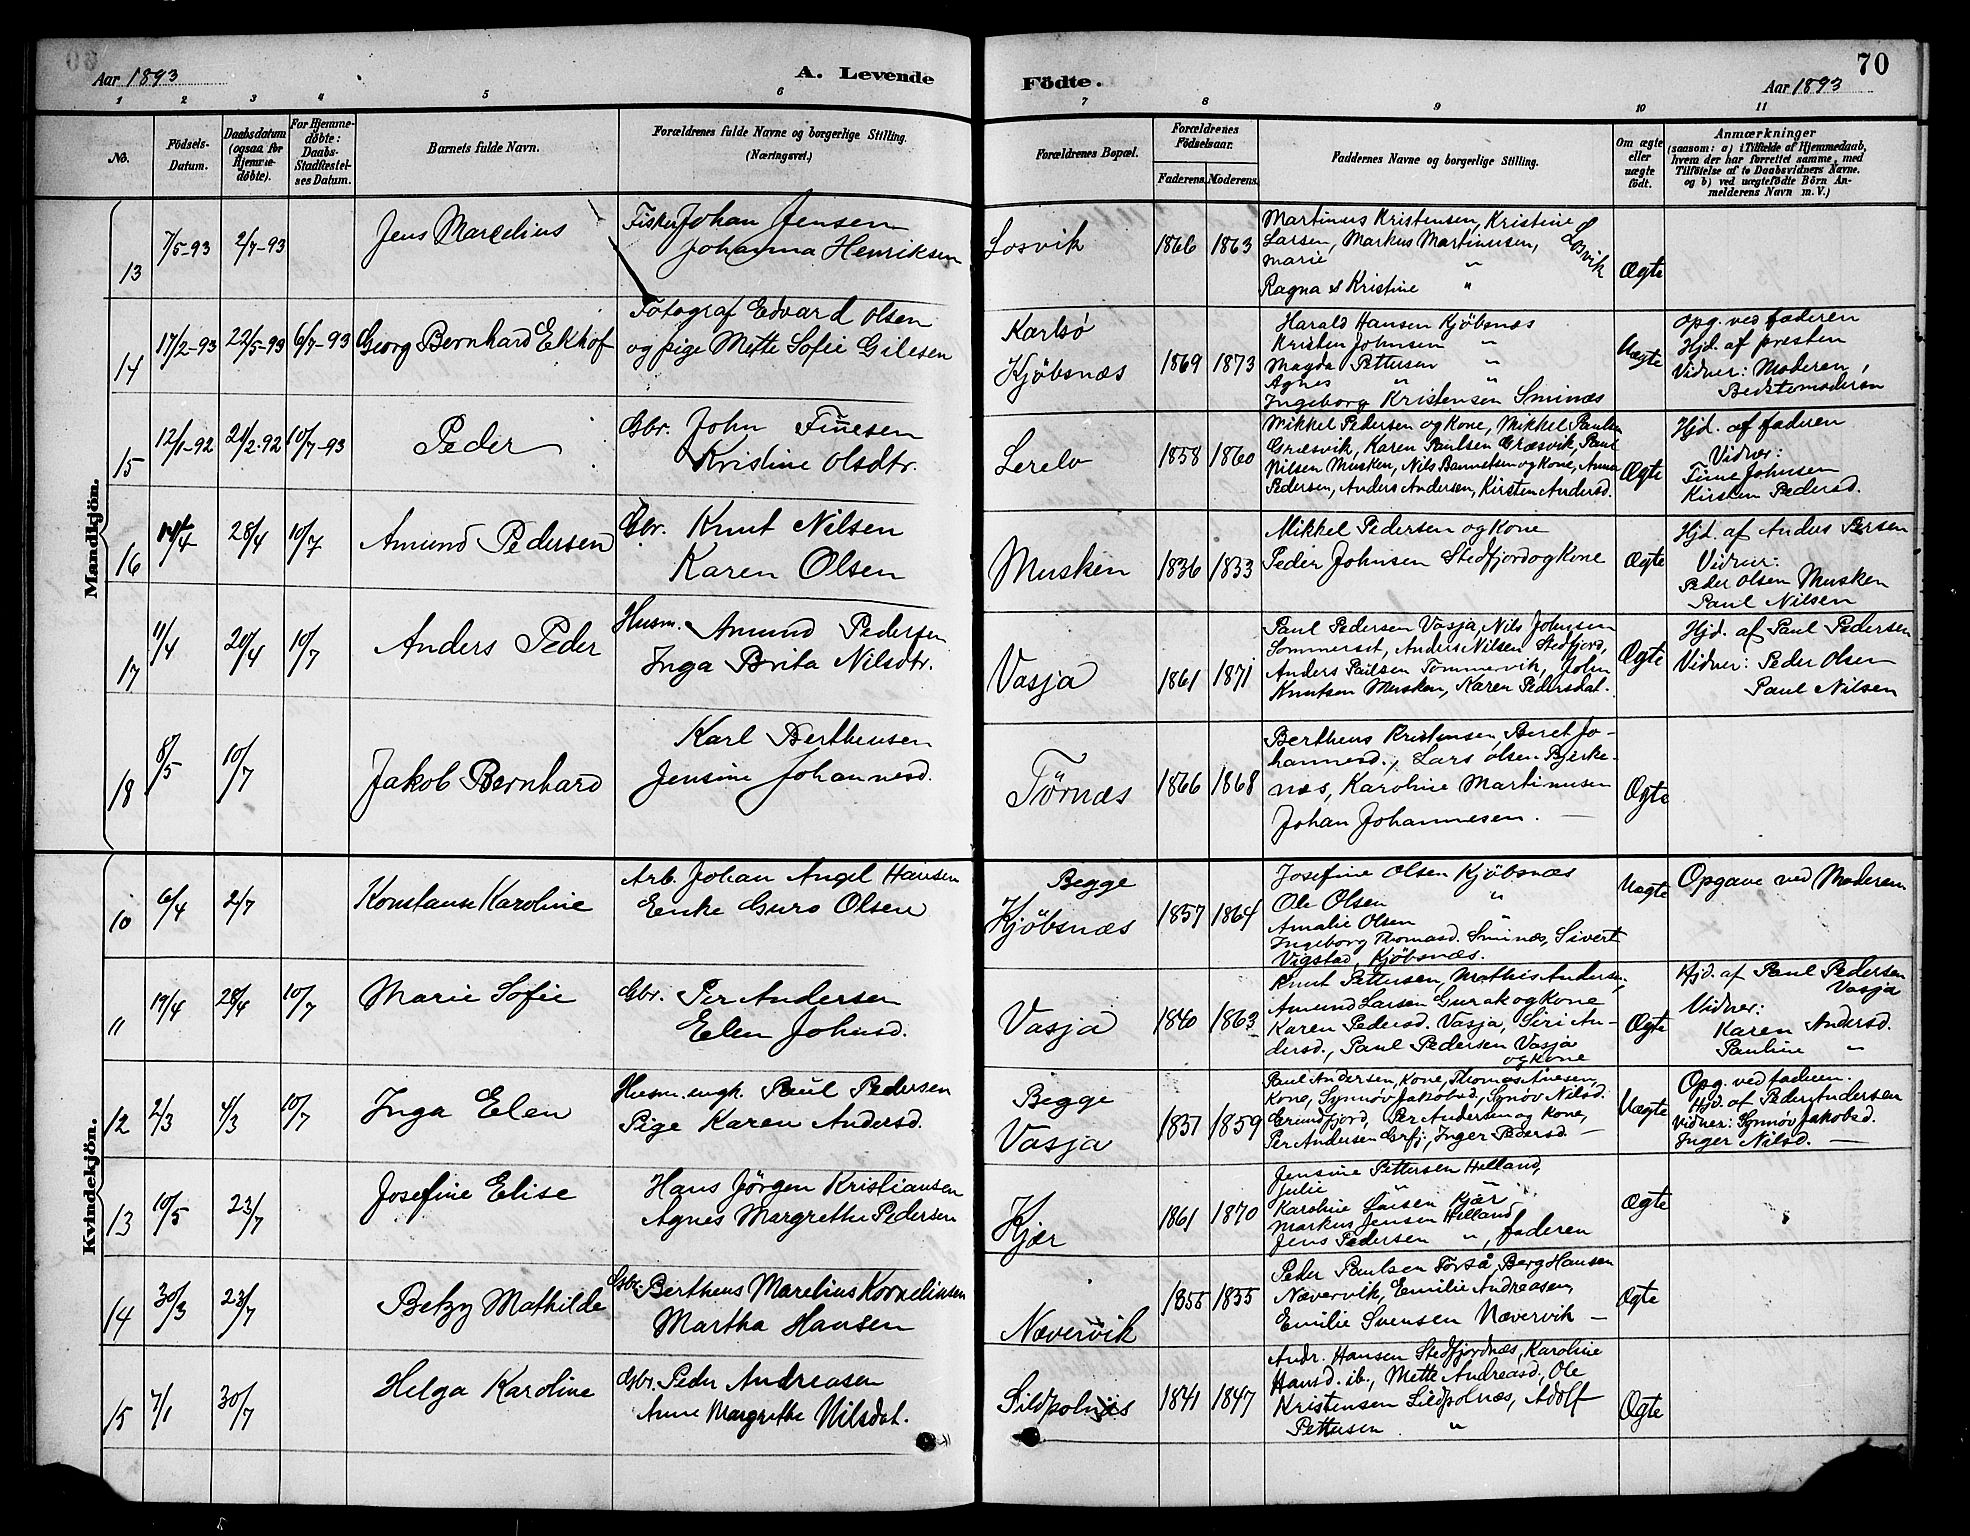 Aar 1893
A. Levende
Födte.
Aar 1893
70
1 2 3 4 5 6 7 8 9 10 11
No.
Födsels-
Datum.
Daabsdatum
(ogsaa for
Hjemme-
döbte).
For Hjemme-
döbte:
Daabs-
Stadfæstel-
ses Datum.
Barnets fulde Navn.
Forældrenes fulde Navne og borgerlige Stilling.
(Næringsvei.)
Forældrenes Bopæl.
Forældrenes
Födselsaar.
Faderens. Moderens.
Faddernes Navne og borgerlige Stilling.
Om ægte
eller
uægte
födt.
Anmærkninger
(saasom: a) i Tilfælde af Hjemmedaab,
hvem der har forrettet samme, med
Tilföielse af to Daabsvidners Navne.
og b) ved uægtefödte Börn An-
melderens Navn m. V.)
Mandkjön.
13 7/5-93 2/7-93
Jens Marcelius
Fisker Johan Jensen
Johanna Henriksen
Losvik
1866 1863
Martinus Kristensen, Kristine
Larsen, Markus Martinusen,
Marie "
Ragna & Kristine "
Losvik
Ægte
14 17/2-93 22/5-93 6/7-93
Georg Bernhard Ekhof
Fotograf Edvard Olsen
og pige Mette Sofie Gilesen
Karlsø
Kjøbsnæs
1869 1873
Harald Hansen Kjøbsnæs
Kristen Johnsen "
Magda Pettersen "
Agnes " "
Ingeborg Kristensen Sminæs
Uægte
Opg. ved faderen
Hjd. af presten
Vidner: Moderen,
Bedstemoderen
15 12/1-92 21/2-92 10/7-93
Peder
Gbr. John Finesen
Kristine Olsdtr.
Lerelv
1858 1860
Mikkel Pedersen og Kone, Mikkel Paulsen
Græsvik, Karen Paulsen Græsvik, Paul
Nilsen Musken, Nils Bannetsen og Kone, Anna
Pedersen, Anders Andersen, Kirsten Andersd.
Ægte
Hjd. af faderen
Vidner:
Finne Johnsen
Kirsten Pedersd.
16 28/4 10/7
Amund Pedersen
Gbr. Knut Nilsen
Karen Olsen
Musken
1836 1833
Mikkel Pedersen og Kone
Peder Johnsen Stedfjord og Kone
Ægte
Hjd. af Anders Persen
Vidner:
Peder Olsen Musken
Paul Nilsen
17 11/4 20/4 10/7
Anders Peder
Husm. Amund Pedersen
Inga Brita Nilsdtr.
Vasja
1861 1871
Paul Pedersen Vasja, Nils Johnsen
Sommerset, Anders Nilsen Stedfjord,
Anders Paulsen Tømmervik, John
Knutsen Musken, Karen Pedersdat.
Ægte
Hjd. af Paul Pedersen
Vidner: Peder Olsen
Paul Nilsen
18 8/5 10/7
Jakob Bernhard
Karl Bertheusen
Jensine Johannesd.
Tørnæs
1866 1868
Bertheus Kristensen, Beret Jo-
hannesd., Lars Olsen Bjerke-
næs, Karoline Martinusen
Johan Johannesen.
Ægte
Kvindekjön.
10 6/4 2/7
Konstanse Karoline
Arb. Johan Angel Hansen
Enke Guro Olsen
Begge
Kjøbsnæs
1857 1864
Josefine Olsen Kjøbsnæs
Ole Olsen "
Amalie Olsen
Ingeborg Thomasd. Sminæs, Sivert
Vigstad, Kjøbsnæs.
Uægte
Opgave ved Moderen
11 19/4 28/4 10/7
Marie Sofie
Gbr. Per Andersen
Elen Johnsd.
Vasja
1840 1863
Knut Pettersen, Mathis Andersen,
Amund Larsen Gurak og Kone
Karen Pedersd. Vasja, Siri An-
dersd., Paul Pedersen Vasja
og Kone
Ægte
Hjd. af Paul Pedersen
Vasja
Vidner:
Karen Andersd.
Pauline "
12 2/3 4/3 10/7
Inga Elen
Husm. engk. Paul Pedersen
Pige Karen Andersd.
Begge
Vasja
1837 1859
Paul Andersen, Kone, Thomas Anesen,
Kone, Synnøv Jakobsd, Synøv Nilsd.
Grundfjord, Per Andersen og Kone,
Per Andersen Grfj., Inger Pedersd.
Uægte
Opg. ved faderen.
Hjd. af Peder Andersen
Vidner: Synnøv Jakobsd.
Inger Nilsd.
13 10/5 23/7
Josefine Elise
Hans Jørgen Kristiansen
Agnes Margrethe Pedersen
Kjær
1861 1870
Jensine Pettersen Helland,
Julie " "
Karoline Larsen Kjær
Markus Jensen Helland
Jens Pedersen ", faderen
Ægte
14 30/3 23/7
Betzy Mathilde
Gbr. Bertheus Marelius Kornelius​en
Martha Hansen
Nævervik
1855 1855
Peder Paulsen Forså, Berg Hansen
Nævervik, Emilie Andreasen,
Emilie Svensen Nævervik
Ægte
15 7/1 30/7
Helga Karoline
Gbr. Peder Andreasen
Anne Margrethe Nilsdat.
Sildpolnæs
1841 1847
Andr. Hansen Stedfjordnæs, Karoline
Hansd. ib., Mette Andreasd., Ole
Kristensen Sildpolnæs, Adolf
Pettersen "
Ægte